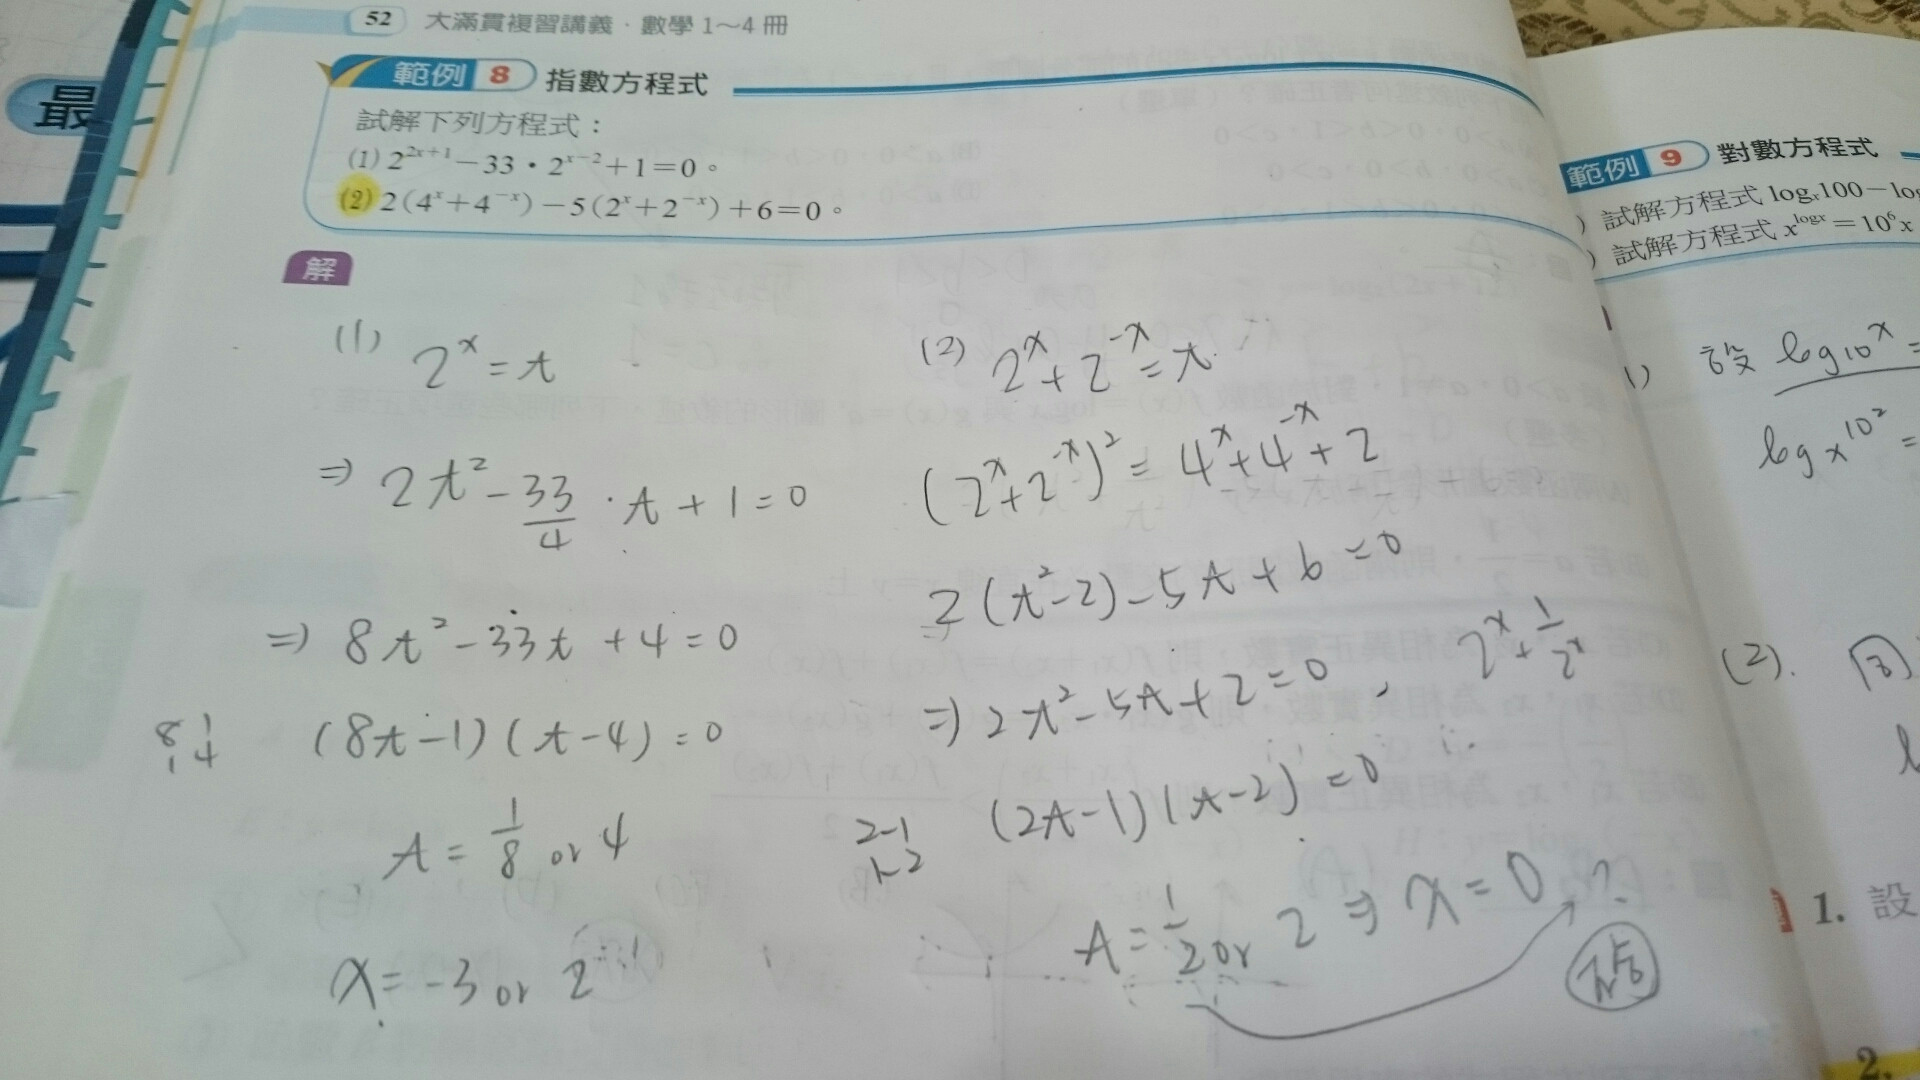 52 大滿貫複習講義．數學 1～4 冊
最
範例 8 指數方程式
試解下列方程式：
(1) 2^{2x+1}－33・2^{x－2}＋1＝0。
(2) 2(4^x＋4^{－x})－5(2^x＋2^{－x})＋6＝0。
解
(1) 2^x = t
⇒ 2t² - 33/4 · t + 1 = 0
⇒ 8t² - 33t + 4 = 0
8 1
1 4
(8t-1)(t-4) = 0
t = 1/8 or 4
x = -3 or 2
(2) 2^x + 2^{-x} = t
(2^x + 2^{-x})² = 4^x + 4^{-x} + 2
2(t²-2) - 5t + 6 = 0
⇒ 2t² - 5t + 2 = 0 , 2^x + 1/2^x
2 -1
1 -2
(2t-1)(t-2) = 0
t = 1/2 or 2 ⇒ x = 0 ?
範例 9 對數方程式
) 試解方程式 log_x 100－log
) 試解方程式 x^{logx}＝10⁶x
1) 設 log 10^x =
log x^{10²} =
(2).
1. 設
2.